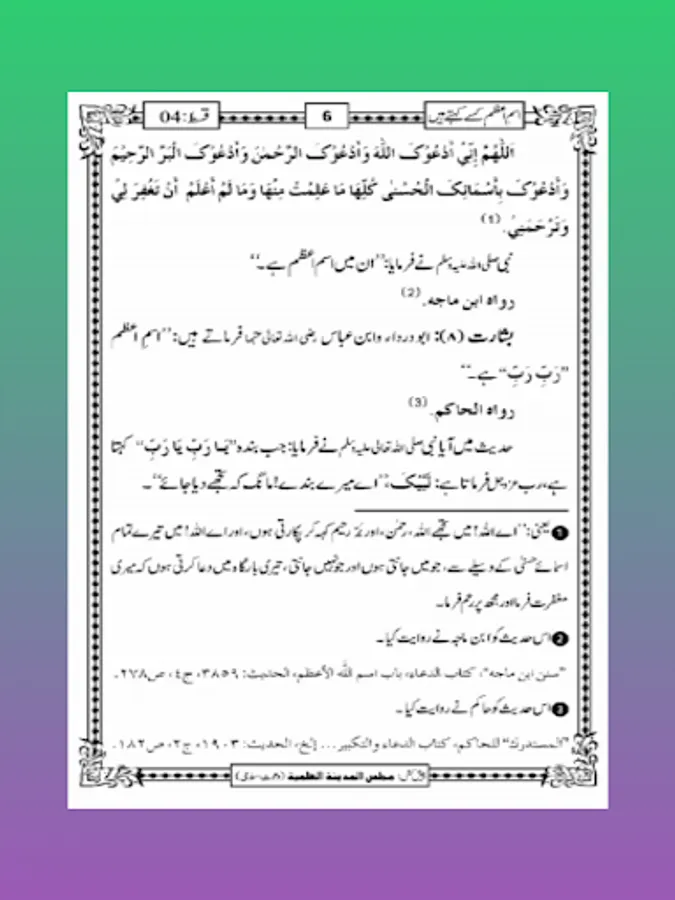 اسم اعظم کسے کہتے ہیں
6
قسط:04
اَللّٰهُمَّ إِنِّيْ أَدْعُوْكَ اللّٰهَ وَأَدْعُوْكَ الرَّحْمٰنَ وَأَدْعُوْكَ الْبَرَّ الرَّحِيْمَ
وَأَدْعُوْكَ بِأَسْمَائِكَ الْحُسْنٰى كُلِّهَا مَا عَلِمْتُ مِنْهَا وَمَا لَمْ أَعْلَمْ أَنْ تَغْفِرَ لِيْ
وَتَرْحَمَنِيْ. (1)
نبی صلی اللہ علیہ وسلم نے فرمایا: ’’ان میں اسم اعظم ہے۔‘‘
رواه ابن ماجه. (2)
بشارت (۸): ابو درداء وابن عباس رضی اللہ تعالیٰ عنہما فرماتے ہیں: ’’اسمِ اعظم
’’رَبِّ رَبِّ‘‘ ہے۔‘‘
رواه الحاكم. (3)
حدیث میں آیا نبی صلی اللہ تعالیٰ علیہ وسلم نے فرمایا: جب بندہ ’’يَا رَبِّ يَا رَبِّ‘‘ کہتا
ہے، رب عزوجل فرماتا ہے: لَبَّيْکَ، ’’اے میرے بندے! مانگ کہ تجھے دیا جائے‘‘۔
1 یعنی: ’’اے اللہ! میں تجھے اللہ، رحمٰن، اور بَرّ رحیم کہہ کر پکارتی ہوں، اور اے اللہ! میں تیرے تمام
اسمائے حسنیٰ کے وسیلے سے، جو میں جانتی ہوں اور جو نہیں جانتی، تیری بارگاہ میں دعا کرتی ہوں کہ میری
مغفرت فرما اور مجھ پر رحم فرما۔
2 اس حدیث کو ابن ماجہ نے روایت کیا۔
"سنن ابن ماجه"، كتاب الدعاء، باب اسم الله الأعظم، الحديث: ٣٨٥٩، ج٤، ص٢٧٨.
3 اس حدیث کو حاکم نے روایت کیا۔
"المستدرك" للحاكم، كتاب الدعاء والتكبير... إلخ، الحديث: ١٩٠٣، ج٢، ص١٨٢.
پیش کش: مجلس المدينة العلمية (دعوتِ اسلامی)